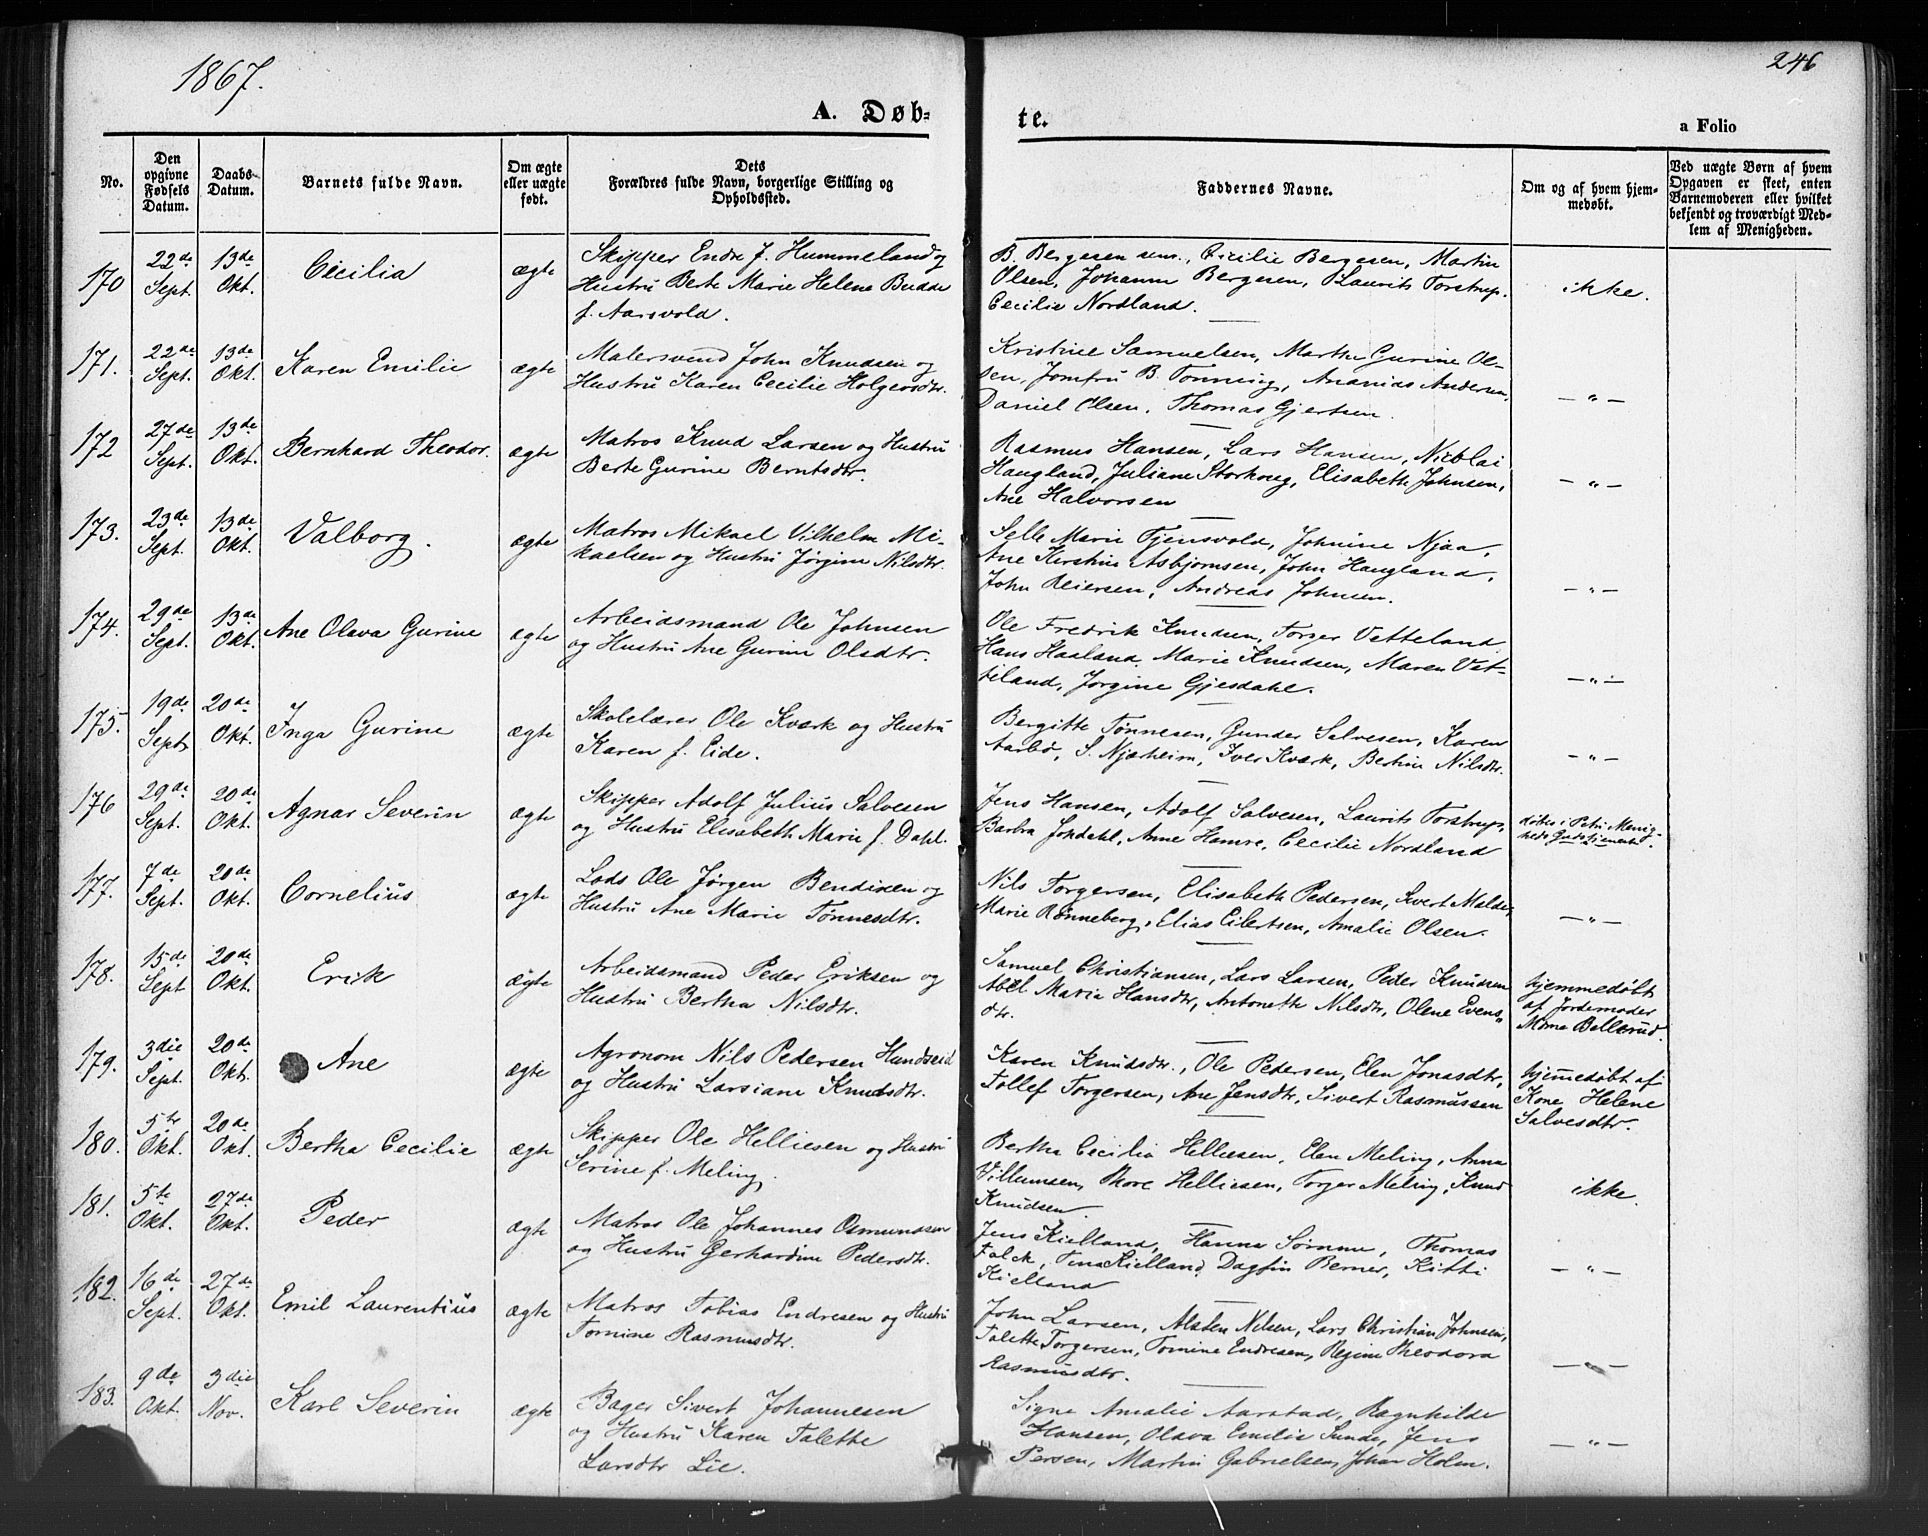 1867.
246
A. Døb-
te.
a Folio
No.
Den opgivne Fødsels Datum.
Daabs Datum.
Barnets fulde Navn.
Om ægte eller uægte født.
Dets Forældres fulde Navn, borgerlige Stilling og Opholdssted.
Faddernes Navne.
Om og af hvem hjemmedøbt.
Ved uægte Børn af hvem Opgaven er skeet, enten Barnemoderen eller hvilket bekjendt og troværdigt Medlem af Menigheden.
170 22de Sept. 13de Okt. Cecilia ægte
Skipper Endre J. Hummeland og
Hustru Berte Marie Helene Budde
f. Aarsvold.
B. Bergesen sen., Cecilie Bergesen, Martin
Olsen, Johanne Bergesen, Laurits Torstrup.
Cecilie Nordland.
ikke.
171. 22de Sept. 13de Okt. Karen Emilie ægte
Malersvend John Knudsen og
Hustru Karen Cecilie Holgersdtr.
Kristine Samuelsen, Marthe Gurine Ol-
sen, Jomfru B. Tonning, Ananias Andersen,
Daniel Olsen, Thomas Gjertsen.
— " —
172 27de Sept. 13de Okt. Bernhard Theodor. ægte
Matros Knud Larsen og Hustru
Berte Gurine Berntsdtr.
Rasmus Hansen, Lars Hansen, Nicolai
Haugland, Juliane Storhoug, Elisabeth Johnsen,
Ane Halvorsen
— " —
173. 23de Sept. 13de Okt. Valborg. ægte
Matros Mikael Vilhelm Mi-
kaelsen og Hustru Jørgine Nilsdtr.
Selle Marie Tjensvold, Johnine Njaa,
Ane Kerstine Asbjørnsen, John Haugland,
John Reiersen, Andreas Johnsen.
— " —
174. 29de Sept. 13de Okt. Ane Olava Gurine ægte
Arbeidsmand Ole Johnsen
og Hustru Ane Gurine Olsdtr.
Ole Fredrik Knudsen, Torger Vetteland
Hans Haaland, Marie Knudsen, Maren Vet-
teland, Jørgine Gjesdahl.
— " —
175. 19de Sept. 20de Okt. Inga Gurine ægte
Skolelærer Ole Kværk og Hustru
Karen f. Eide.
Bergitte Tønnesen, Gunder Salvesen, Karen
Aarbø, S. Njærheim, Iver Kværk, Bertine Nilsdtr.
— " —
176 29de Sept. 20de Okt. Agnar Severin ægte
Skipper Adolf Julius Salvesen
og Hustru Elisabeth Marie f. Dahl.
Jens Hansen, Adolf Salvesen, Laurits Torstrup,
Barbra Jokdahl, Anne Hamre, Cecilie Nordland
døbt i Petri Menig-
heds Gudstjeneste.
177. 7de Sept. 20de Okt. Cornelius ægte
Lods Ole Jørgen Bendixen og
Hustru Ane Marie Tønnesdtr.
Nils Torgersen, Elisabeth Pedersen, Sivert Malde,
Marie Rønneberg, Elias Eilertsen, Amalie Olsen.
— " —
178. 15de Sept 20de Okt. Erik ægte
Arbeidsmand Peder Eriksen og
Hustru Bertha Nilsdtr.
Samuel Christiansen, Lars Larsen, Peder Knudsen
Abel Maria Hansdtr, Antonette Nilsdtr, Olene Evens-
dtr.
hjemmedøbt
af Jordemoder
Mina Bellerud.
179. 3die Sept. 20de Okt. Ane ægte
Agronom Nils Pedersen Hundseid
og Hustru Larsiane Knudsdtr.
Karen Knudsdtr., Ole Pedersen, Elen Jonasdtr,
Tollef Torgersen, Ane Jensdtr, Sivert Rasmussen
hjemedøbt af
Kone Helene
Salvesdtr.
180. 5te Okt. 20de Okt. Bertha Cecilie ægte
Skipper Ole Helliesen og Hustru
Serine f. Meling.
Bertha Cecilie Helliesen, Elen Meling, Anna
Villumsen, Thore Helliesen, Torger Meling, Knud
Knudsen.
ikke.
181. 5te Okt. 27de Okt. Peder ægte
Matros Ole Johannes Osmundsen
og Hustru Gerhardine Pedersdtr.
Jens Kielland, Hanna Sømme, Thomas
Falck, Tina Kielland, Dagfin Berner, Kitti
Kielland
— " —
182. 16de Sept. 27de Okt. Emil Laurentius ægte
Matros Tobias Endresen og Hustru
Tomine Rasmusdtr.
John Larsen, Nilsen, Lars Christian Johnsen,
Talette Torgersen, Tomine Endresen, Regine Theodora
Rasmusdtr.
— " —
183. 9de Okt. 3die Nov. Karl Severin ægte
Bager Sivert Johannesen
og Hustru Karen Talette
Larsdtr Lie.
Signe Amalie Aarstad, Ragnhilde
Hansen, Olava Emilie Sunde, Jens
Persen, Martin Gabrielsen, Johan Holm.
— " —